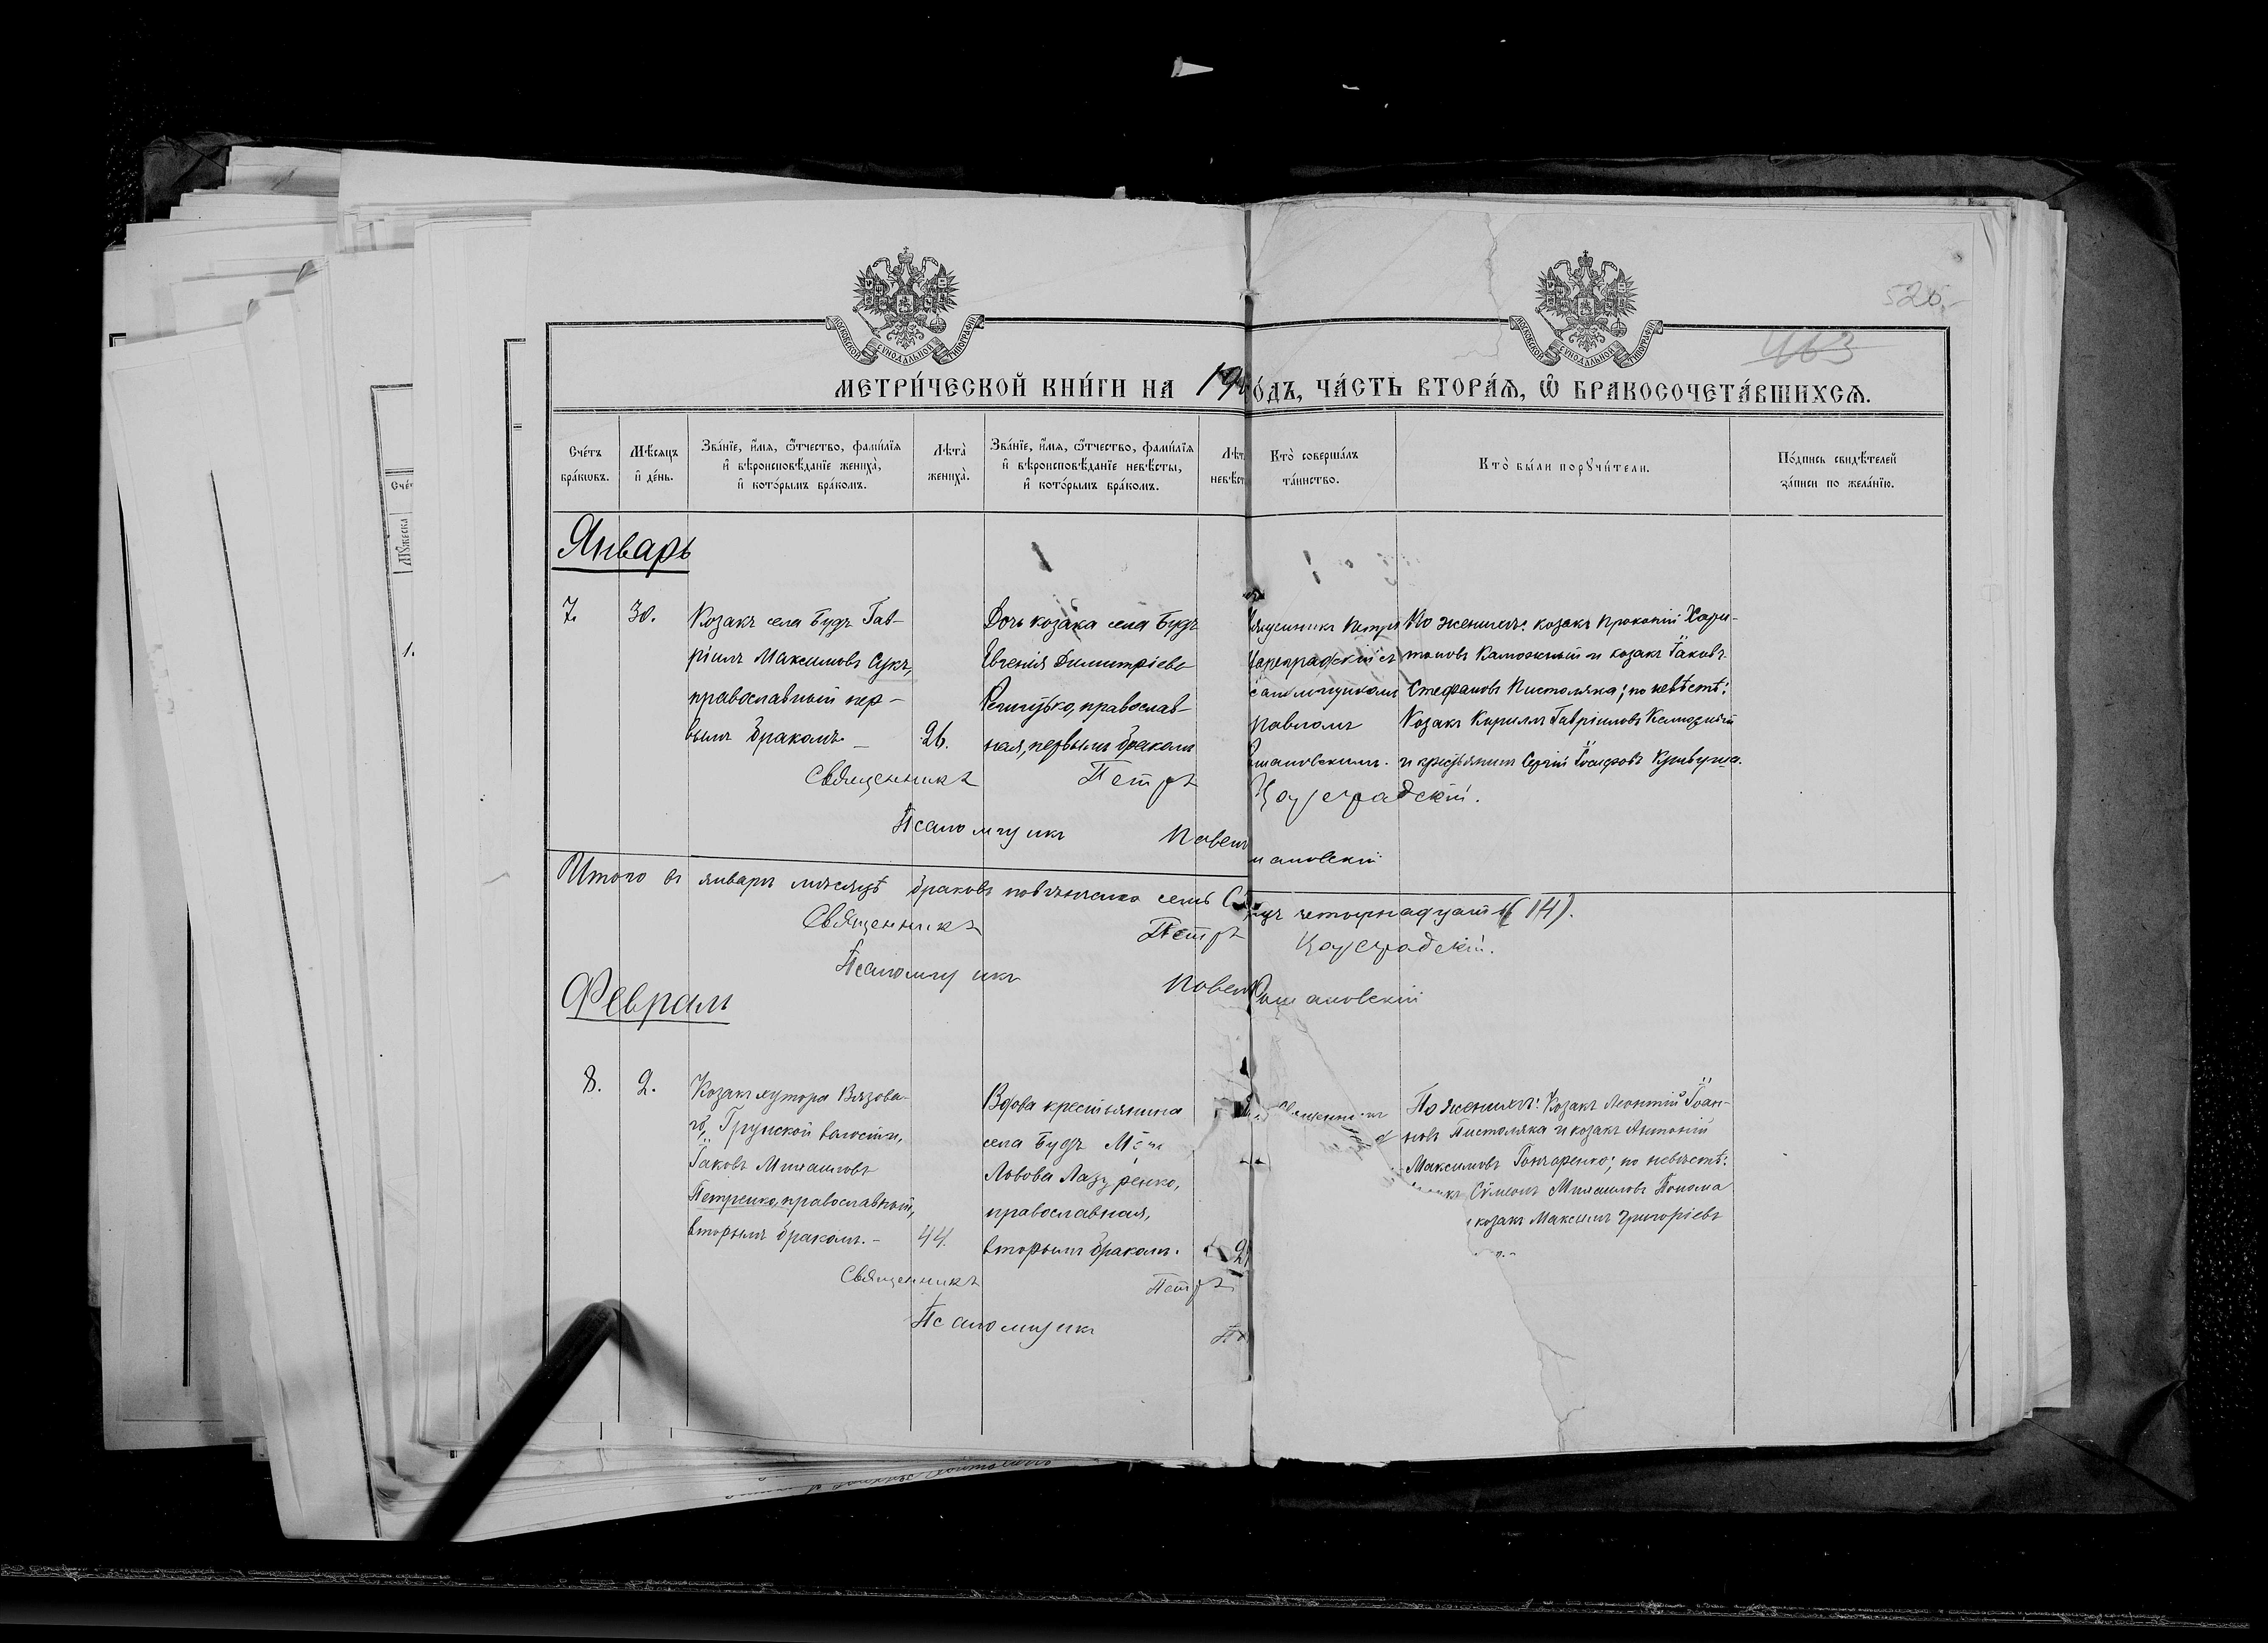 МОСКОВСКОЙ СѴНОДАЛЬНОЙ ТИПОГРАФІИ
МОСКОВСКОЙ СѴНОДАЛЬНОЙ ТИПОГРАФІИ
525
463
МЕТРИ́ЧЕСКОЙ КНИ́ГИ НА 19 ОДЪ, ЧА́СТЬ ВТОРА́Ѧ, Ѽ БРАКОСОЧЕТА́ВШИХСѦ.
Сче́тъ бра́кѡвъ.
Мѣ́сѧцъ и҆ де́нь.
Зва́нїе, и҆́мѧ, ѻ҆́тчество, фами́лїѧ и҆ вѣроисповѣ́данїе жениха̀, и҆ кото́рымъ бра́комъ.
Лѣта̀ жениха̀.
Зва́нїе, и҆́мѧ, ѻ҆́тчество, фами́лїѧ и҆ вѣроисповѣ́данїе невѣ́сты, и҆ кото́рымъ бра́комъ.
Лѣт невѣст
Кто̀ соверша́лъ та́инство.
Кто̀ бы́ли порꙋчи́тели.
По́дпись свидѣ́телей за́писи по жела́нїю.
Январь
7.
30.
Козакъ села Будъ Гав-
ріилъ Максимовъ Сукъ,
православный пер-
вымъ бракомъ
26.
Дочь козака села Будъ
Евгенія Димитріева
православ-
ная, первымъ бракомъ
Петръ
Цареградскій съ
псаломщикомъ
Павломъ
По женихѣ: козакъ Прокопій Хари-
тоновъ и козакъ Іаковъ
Стефановъ Пистоляка; по невѣстѣ:
Козакъ Кириллъ Гавріиловъ
и крестьянинъ Сергій Іосифовъ Кривуша.
Священникъ Петръ Цареградскій.
Псаломщикъ Павелъ
Итого въ январѣ мѣсяцѣ браковъ повѣнчано семь
четырнадцать (14).
Священникъ Петръ Цареградскій.
Псаломщикъ Павелъ
Февраль
8.
2.
Козакъ хутора Вязова-
го, Грунской волости,
Іаковъ Михаиловъ
Петренко, православный,
вторымъ бракомъ.
44.
Вдова крестьянина
села Будъ
Львова Лазуренко,
православная,
вторымъ бракомъ.
Священникъ
По женихѣ: Козакъ Леонтій Іоан-
новъ Пистоляка и козакъ Антоній
Максимовъ Гончаренко; по невѣстѣ:
Сѵмеонъ Михаиловъ Понома
козакъ Максимъ Григоріевъ
Священникъ Петръ
Псаломщикъ